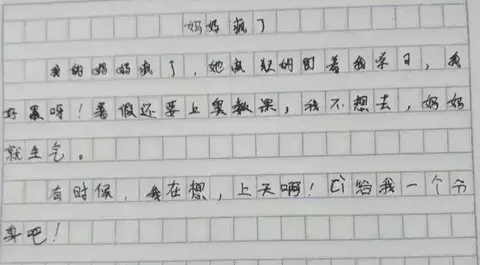 妈妈疯了
我的妈妈疯了,她疯的盯着我学习,我
好累呀!暑假还要上奥数果,我不想去,妈妈
就生气。
有时候,我在想,上天啊!Cì给我一个令
尊吧!